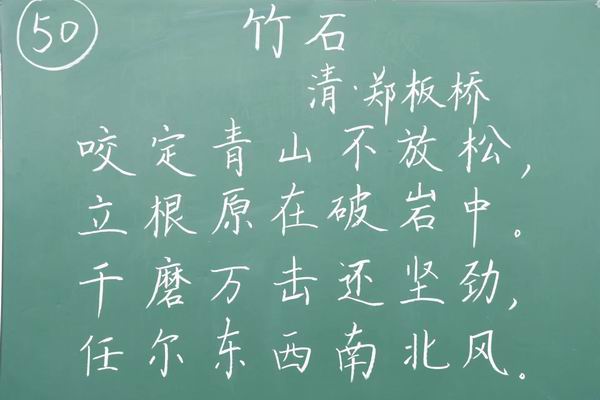 50
竹石
清·郑板桥
咬定青山不放松，
立根原在破岩中。
千磨万击还坚劲，
任尔东西南北风。